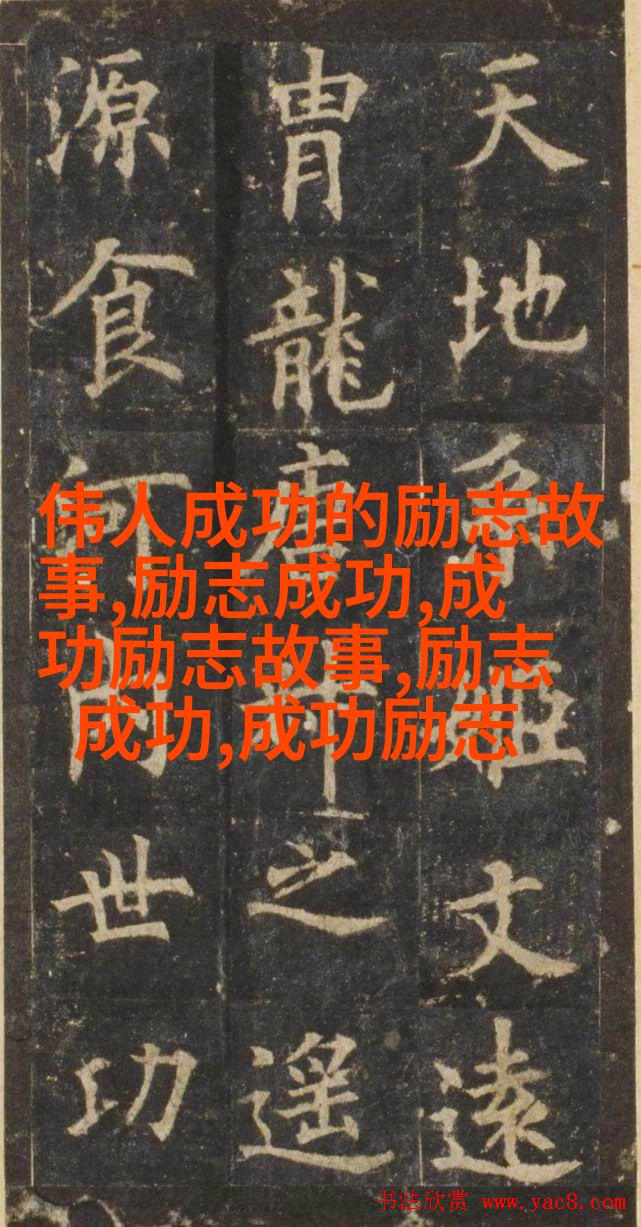 天地系姬文遠
冑龍唐之遥
源食河內世功
伟人成功的励志故
事,励志成功,成
功励志故事,励志
成功,成功励志
书法欣赏 www.yac8.com